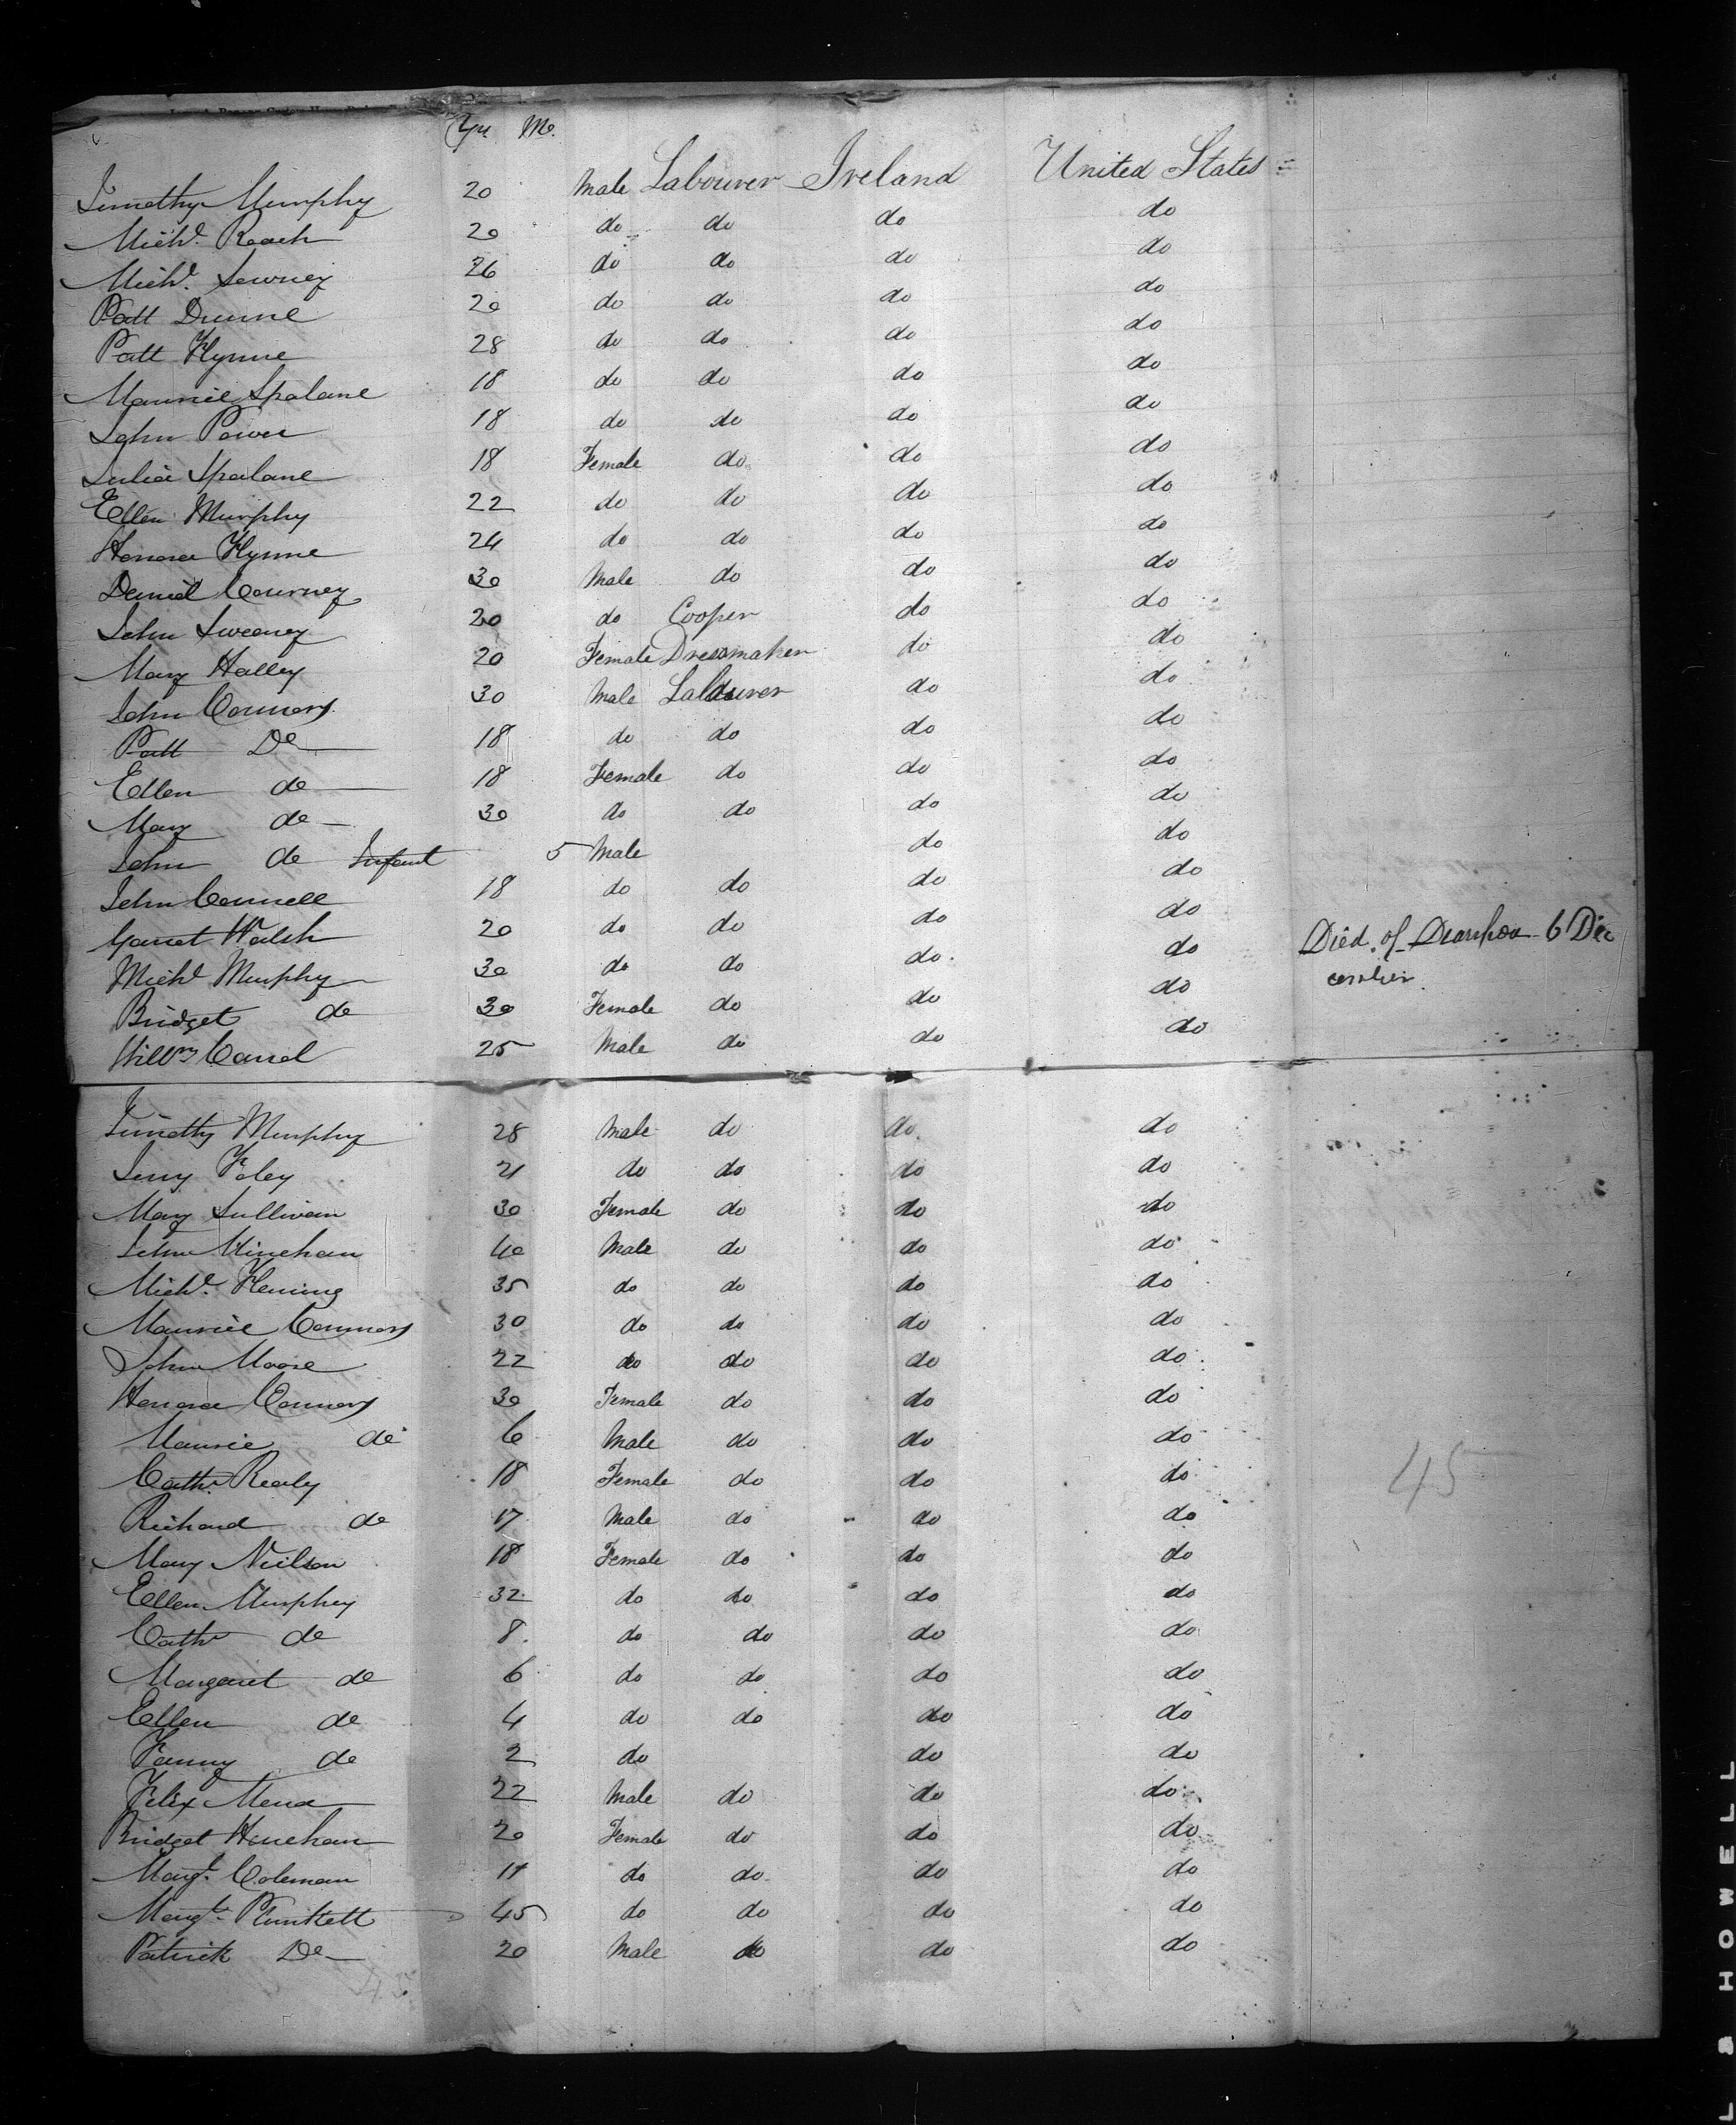 Yrs Mo.
Timothy Murphy 20 Male Labourer Ireland United States
Michl. Roach 20 do do do do
Michl. 26 do do do do
Patt Dunne 20 do do do do
Patt Flynne 28 do do do do
Maurice Spalane 18 do do do do
John Power 18 do do do do
Julia Spalane 18 Female do do do
Ellen Murphy 22 do do do do
Honora Flynne 24 do do do do
Daniel Courney 30 Male do do do
John Sweeney 20 do Cooper do do
Mary Halley 20 Female Dressmaker do do
John Connors 30 Male Labourer do do
Patt Do 18 do do do do
Ellen do 18 Female do do do
Mary do 30 do do do do
John do Infant 5 Male do do
John Connell 18 do do do do
Garret Walsh 20 do do do do Died of 6 Dec
Michl Murphy 30 do do do do ember
Bridget do 30 Female do do do
Willm Carrol 25 Male do do do
Timothy Murphy 28 Male do do do
Foley 21 do do do do
Mary Sullivan 30 Female do do do
John Minehan 40 Male do do do
Michl. Fleming 35 do do do do
Maurice Connors 30 do do do do
John Moore 22 do do do do
Honora Connors 30 Female do do do
Maurice do 6 Male do do do
Cathe. Realy 18 Female do do do
Richard do 17 Male do do do
45
Mary Neilson 18 Female do do do
Ellen Murphey 32 do do do do
Cathe do 8 do do do do
Margaret do 6 do do do do
Ellen do 4 do do do do
Fanny do 2 do do do
Felix 22 Male do do do
Bridget Hinehan 20 Female do do do
Margt. Coleman do do do do
Margt. Plunkett 45 do do do do
Patrick Do 20 Male do do do
45
S HOWELL